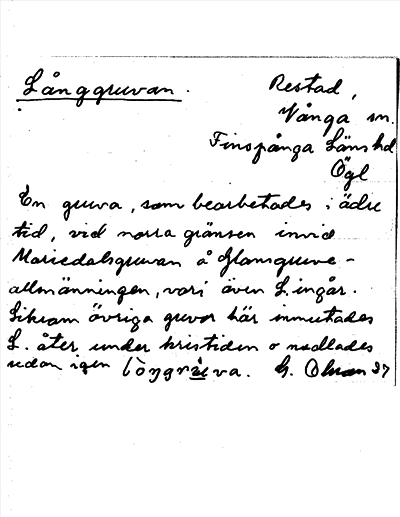 Långgruvan.
Restad,
Vånga sn.
Finspånga Läns hd
Ögl
En gruva, som bearbetades i äldre
tid, vid norra gränsen invid
Mariedalsgruvan å Glansgruve-
allmänningen, vari även L. ingår.
Liksom övriga gruvor här inmutades
L. åter under kristiden o nedlades
sedan igen lòŋgrù̱va. G. 37